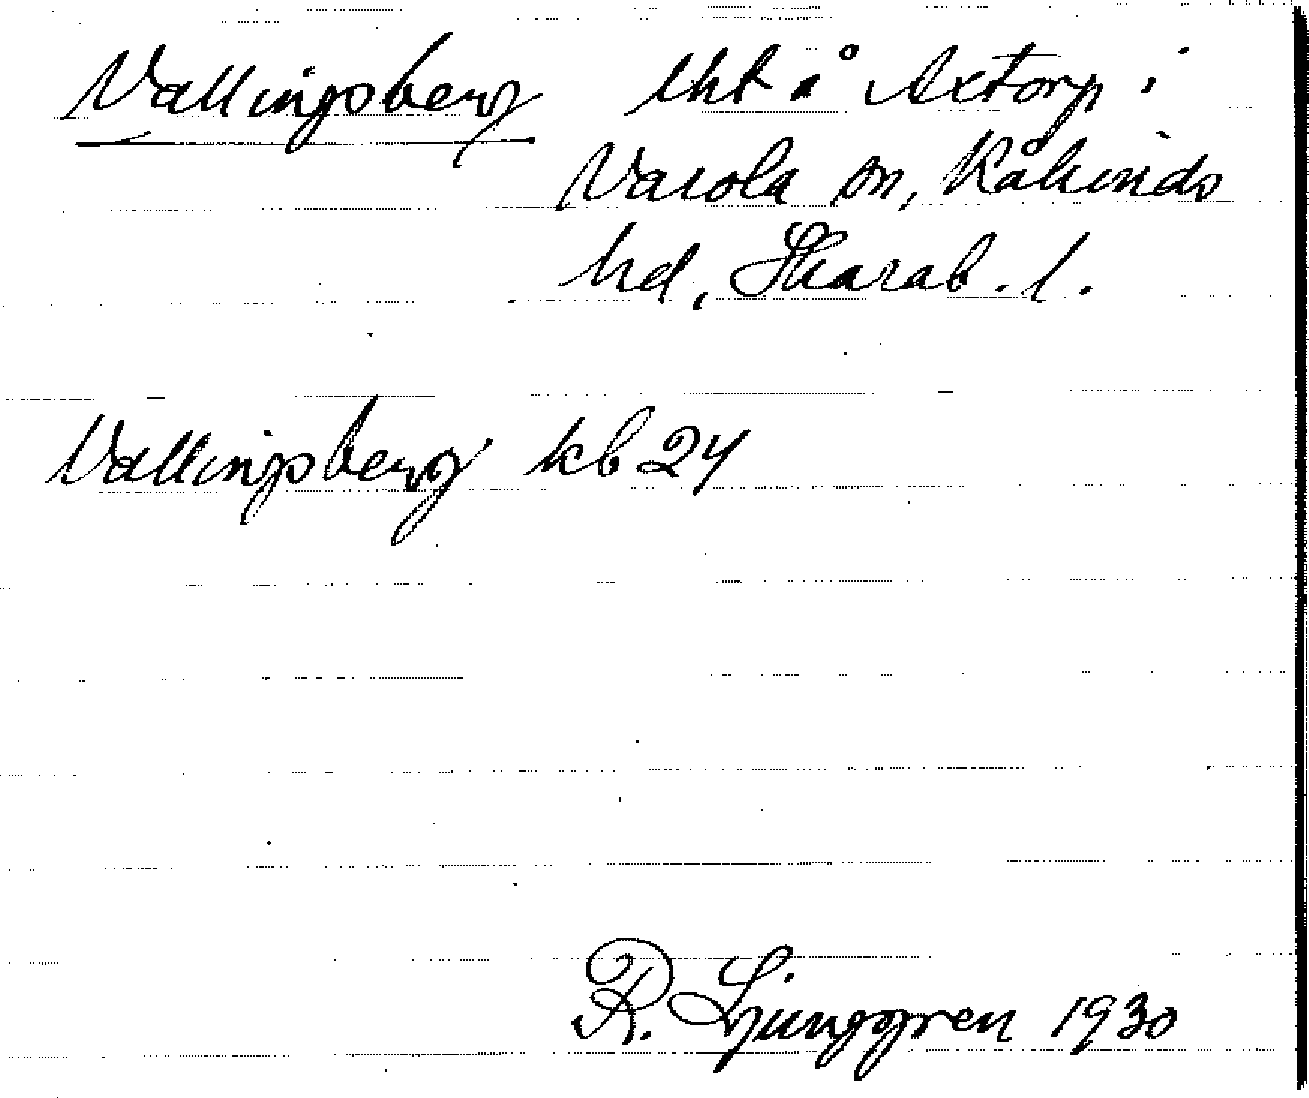 Vallingsberg lht å Axtorp i
Varola sn, Kåkinds
hd, Skarab. l.
Vallingsberg kb 24
R. Ljunggren 1930